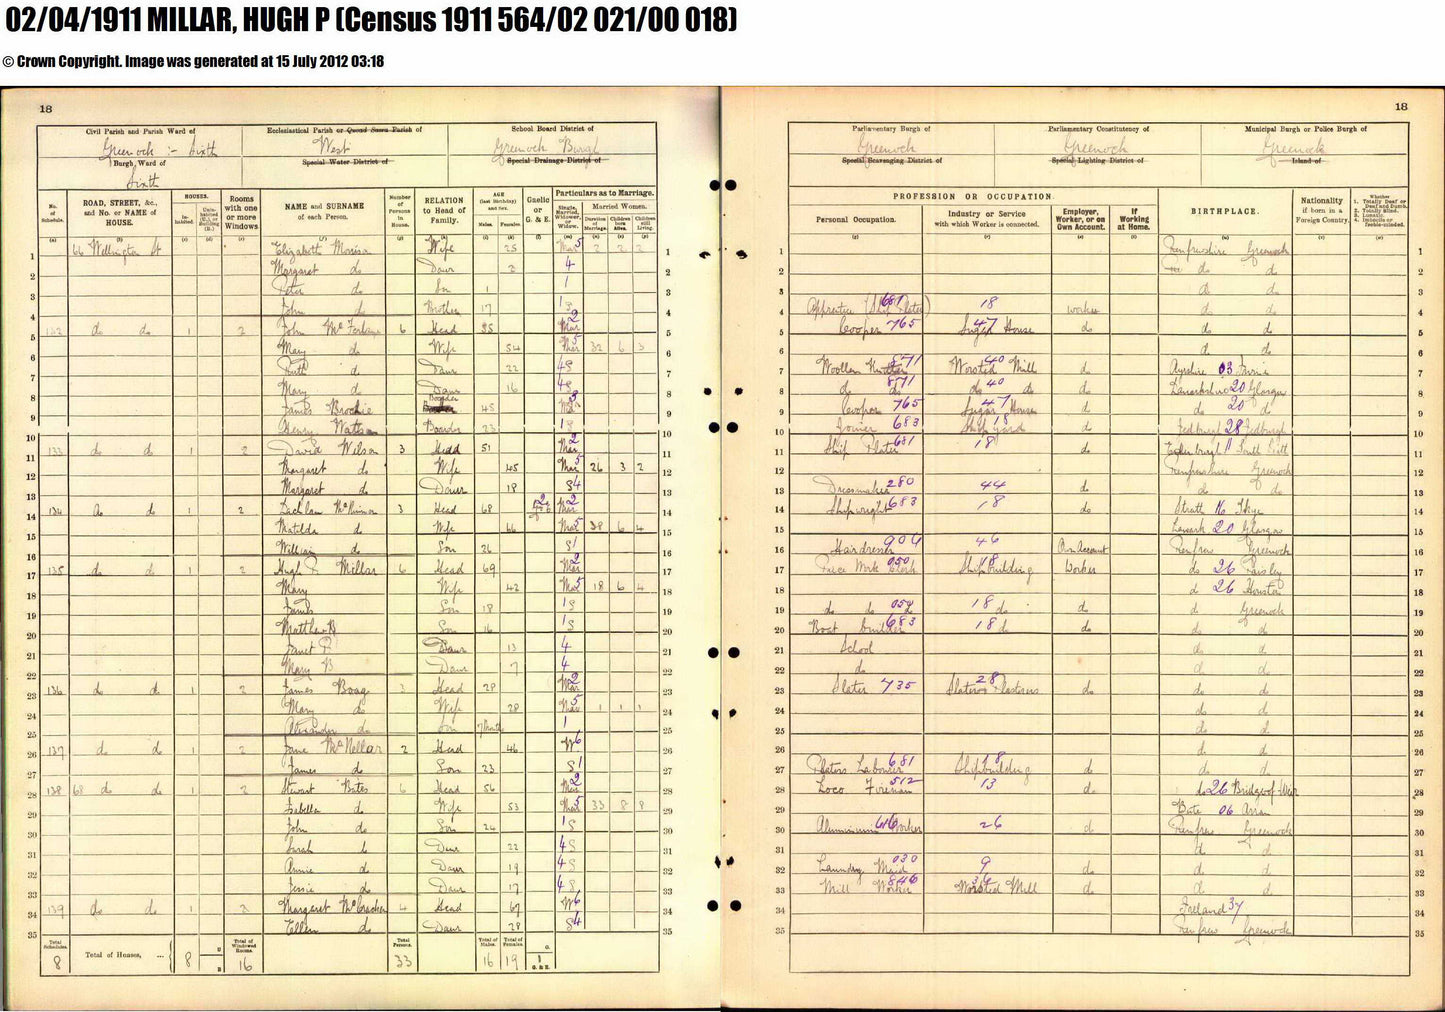 02/04/1911 MILLAR, HUGH P (Census 1911 564/02 021/00 018)
© Crown Copyright. Image was generated at 15 July 2012 03:18
18
Civil Parish and Parish Ward of Greenock :- Sixth
Burgh Ward of Sixth
Ecclesiastical Parish or Quoad Sacra Parish of West
Special Water District of
School Board District of Greenock Burgh
Special Drainage District of
No. of Schedule. ROAD, STREET, &c., and No. or NAME of HOUSE. HOUSES. Inhabited Rooms with one or more Windows NAME and SURNAME of each Person. Number of Persons in House. RELATION to Head of Family. AGE (last Birthday) and Sex. Males. Females. Gaelic or G. & E. Particulars as to Marriage. Single, Married, Widower, or Widow. Married Women. Duration of Marriage. Children born Alive. Children still Living.
1 66 Wellington St Elizabeth Morrison Wife 25 Mar 2 2 2 1
2 Margaret do Daur 2 2
3 Peter do Son 1 3
4 John do Brother 17 S 4
5 132 do do 1 2 John McFarlane 6 Head 55 Mar 5
6 Mary do Wife 54 Mar 32 6 3 6
7 Ruth do Daur 22 S 7
8 Mary do Daur 16 S 8
9 James Brochie Boarder 45 9
10 Henry Watson Boarder 23 S 10
11 133 do do 1 2 David Wilson 3 Head 51 Mar 11
12 Margaret do Wife 45 Mar 26 3 2 12
13 Margaret do Daur 18 S 13
14 134 do do 1 2 Lachlan McKinnon 3 Head 68 Mar 14
15 Matilda do Wife 66 Mar 38 6 4 15
16 William do Son 26 S 16
17 135 do do 1 2 Hugh P Millar 6 Head 69 Mar 17
18 Mary Wife 42 Mar 18 6 4 18
19 James Son 18 S 19
20 Matthew B Son 16 S 20
21 Janet P Daur 13 21
22 Mary B Daur 7 22
23 136 do do 1 2 James Boag 3 Head 28 Mar 23
24 Mary do Wife 28 Mar 1 1 1 24
25 Alexander do Son 7 Months 25
26 137 do do 1 2 Jane McKellar 2 Head 46 W 26
27 James do Son 23 S 27
28 138 68 do do 1 2 Stewart Bates 6 Head 56 Mar 28
29 Isabella do Wife 53 Mar 33 8 8 29
30 John do Son 24 S 30
31 Sarah do Daur 22 S 31
32 Annie do Daur 19 S 32
33 Jessie do Daur 17 S 33
34 139 do do 1 2 Margaret McCracken 4 Head 67 W 34
35 Ellen do Daur 28 S 35
Total Schedules. 8 Total of Houses, ... 8 Total of Windowed Rooms. 16 Total Persons. 33 Total of Males. 16 Total of Females. 19 G. G. & E. 1
18
Parliamentary Burgh of Greenock
Special Scavenging District of
Parliamentary Constituency of Greenock
Special Lighting District of
Municipal Burgh or Police Burgh of Greenock
Island of
PROFESSION OR OCCUPATION. Personal Occupation. Industry or Service with which Worker is connected. Employer, Worker, or on Own Account. If Working at Home. BIRTHPLACE. Nationality if born in a Foreign Country. Whether 1. Totally Deaf or Deaf and Dumb. 2. Totally Blind. 3. Lunatic. 4. Imbecile or feeble-minded.
1 Renfrewshire Greenock 1
2 do do 2
3 do do 3
4 Apprentice (Ship Plater) 681 18 worker do do 4
5 Cooper 765 Sugar House 47 do do do 5
6 do do 6
7 Woollen Knitter 871 Worsted Mill 40 do Ayrshire 03 Irvine 7
8 do do 871 do do 40 do Lanarkshire 20 Glasgow 8
9 Cooper 765 Sugar House 47 do do 20 do 9
10 Joiner 683 Ship yard 18 do Jedburgh 28 Jedburgh 10
11 Ship Plater 681 18 do Edinburgh 11 South Leith 11
12 Renfrewshire Greenock 12
13 Dressmaker 280 44 do do do 13
14 Shipwright 683 18 do Strath 16 Skye 14
15 Lanark 20 Glasgow 15
16 Hairdresser 904 46 Own Account Renfrew Greenock 16
17 Piece Work Clerk 050 Shipbuilding 18 Worker do 26 Paisley 17
18 do 26 Houston 18
19 do do do 18 do do do Greenock 19
20 Boat builder 683 18 do do do do 20
21 School do do 21
22 do do do 22
23 Slater 735 Slaters Plasterers 28 do do do 23
24 do do 24
25 do do 25
26 do do 26
27 Platers Labourer 681 Shipbuilding 18 do do do 27
28 Loco Foreman 512 13 do do 26 Bridge of Weir 28
29 Bute 06 Arran 29
30 Aluminium Worker 616 26 do Renfrew Greenock 30
31 do do 31
32 Laundry Maid 030 9 do do do 32
33 Mill Worker 846 Worsted Mill do do do 33
34 Ireland 37 34
35 Renfrew Greenock 35